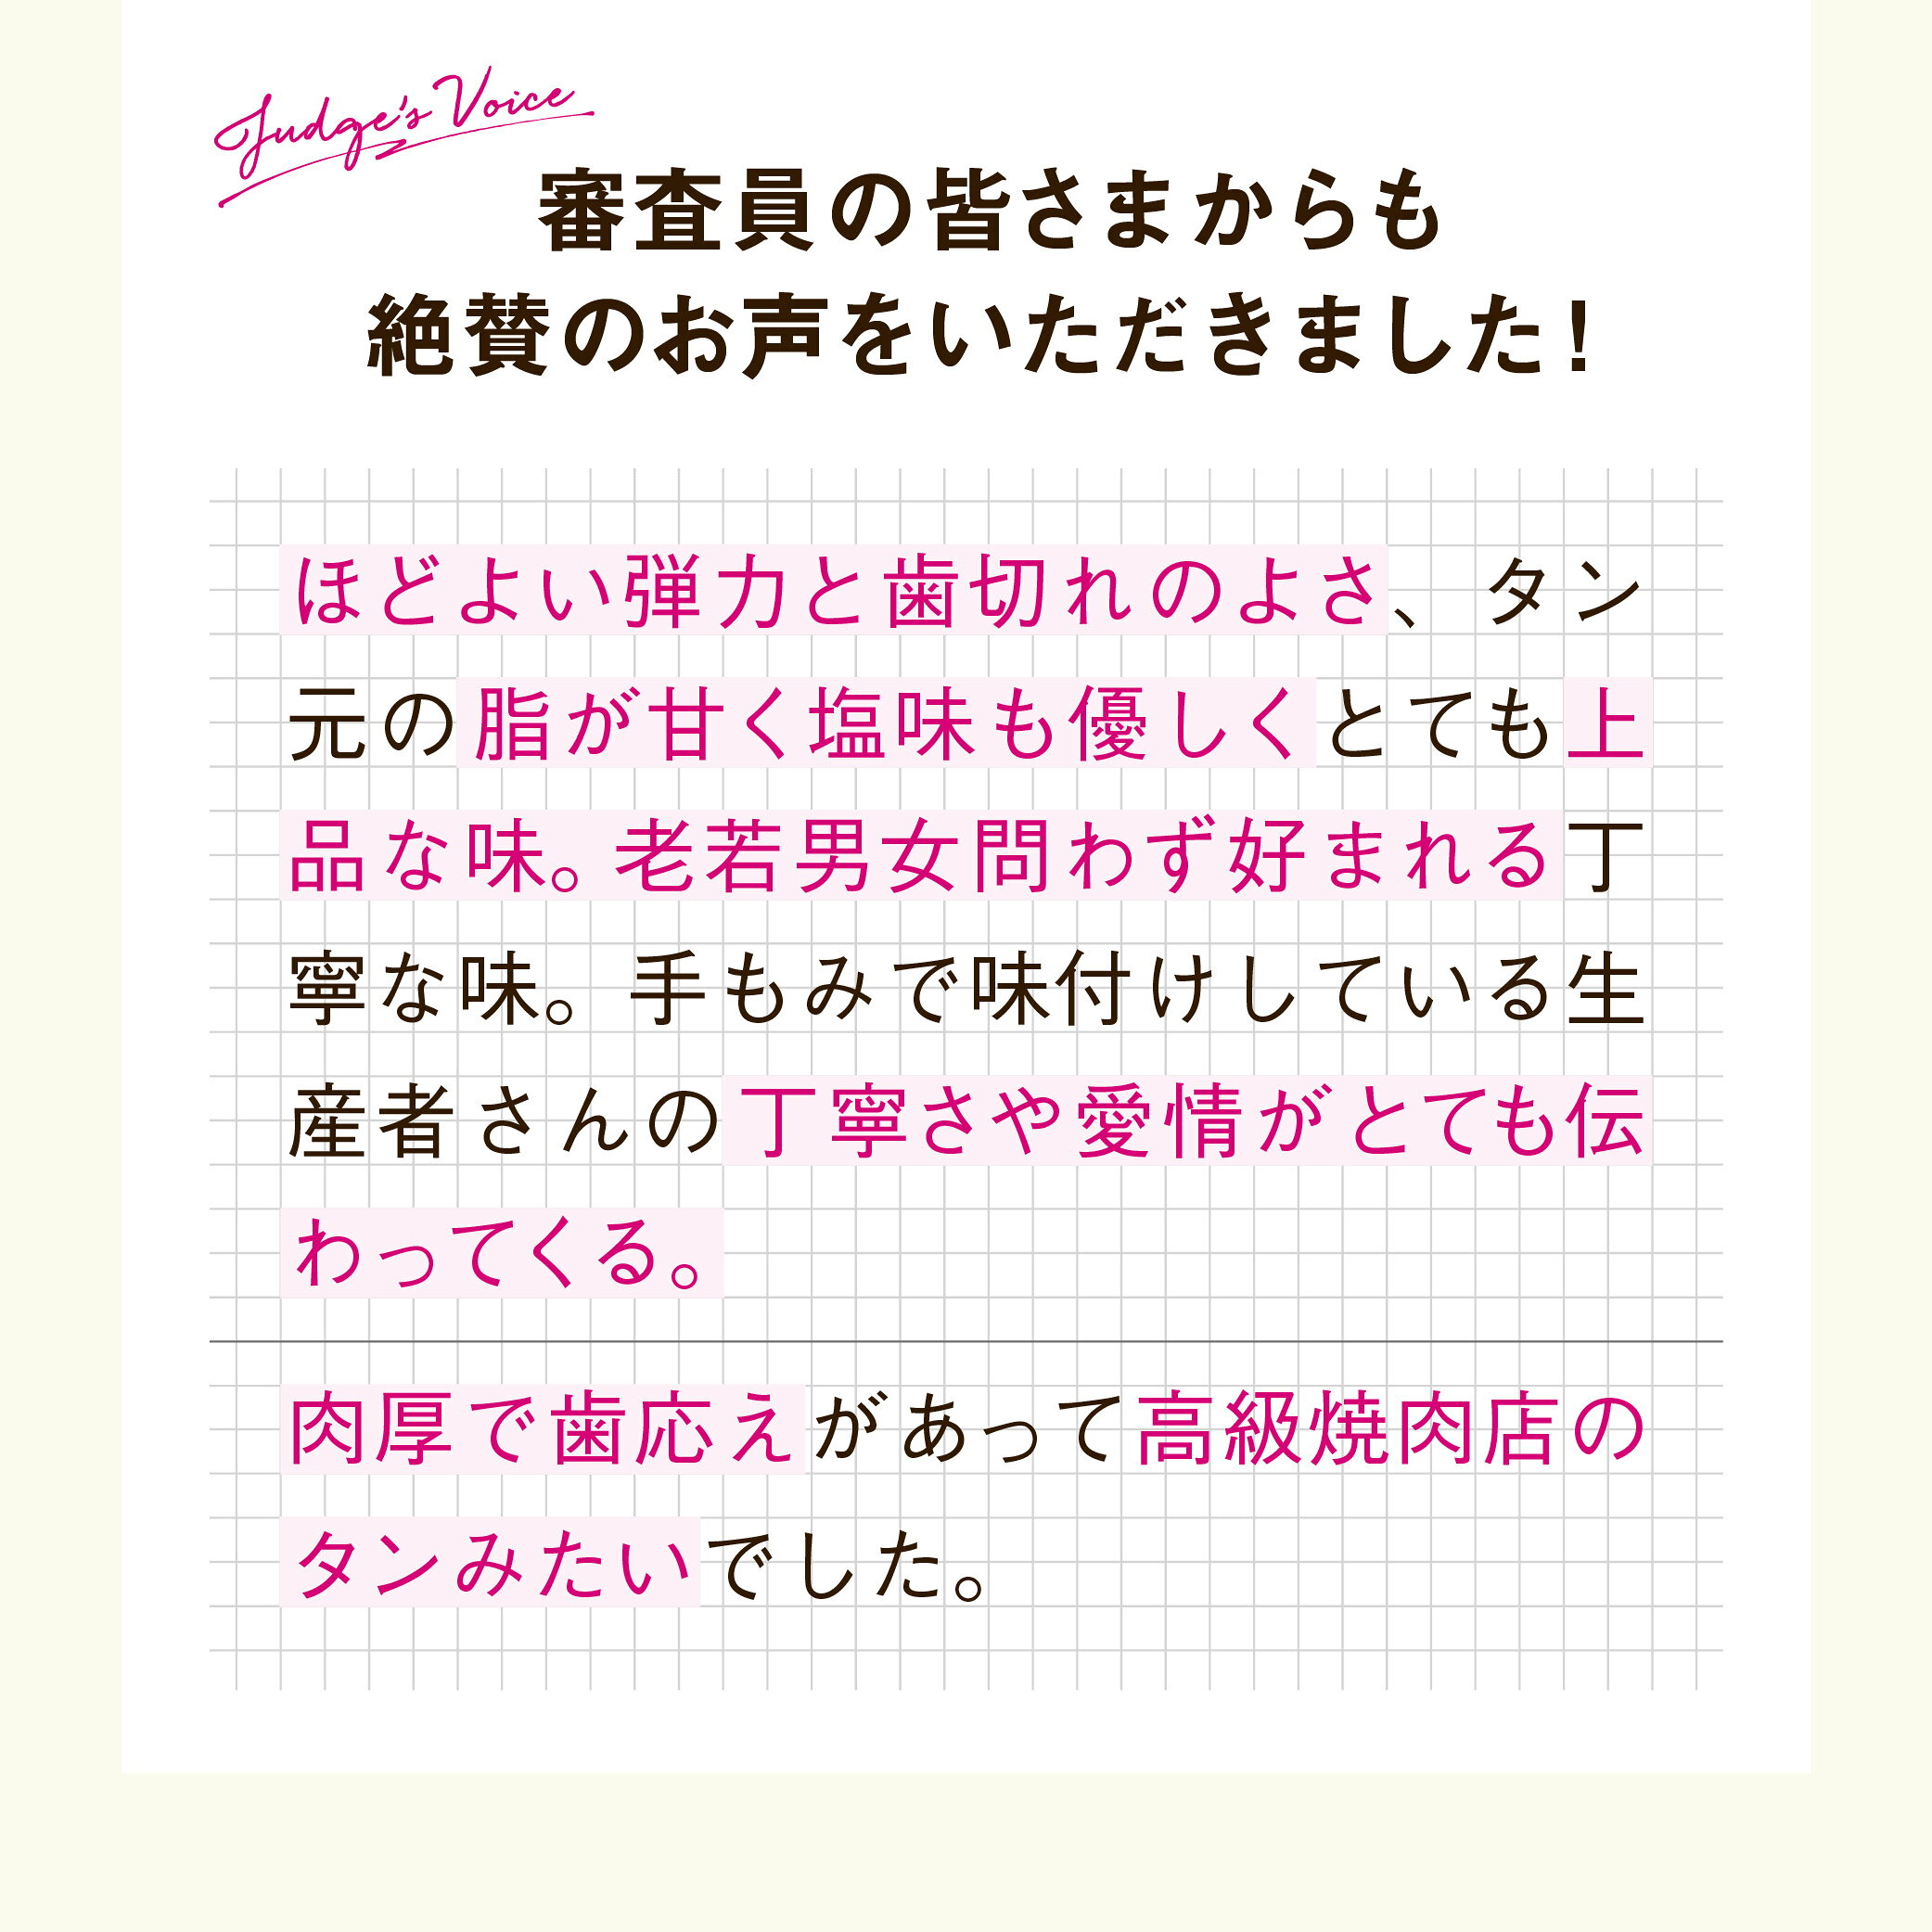 Judge's Voice
審査員の皆さまからも
絶賛のお声をいただきました!
ほどよい弾力と歯切れのよさ、タン
元の脂が甘く塩味も優しくとても上
品な味。老若男女問わず好まれる丁
寧な味。手もみで味付けしている生
産者さんの丁寧さや愛情がとても伝
わってくる。
肉厚で歯応えがあって高級焼肉店の
タンみたいでした。